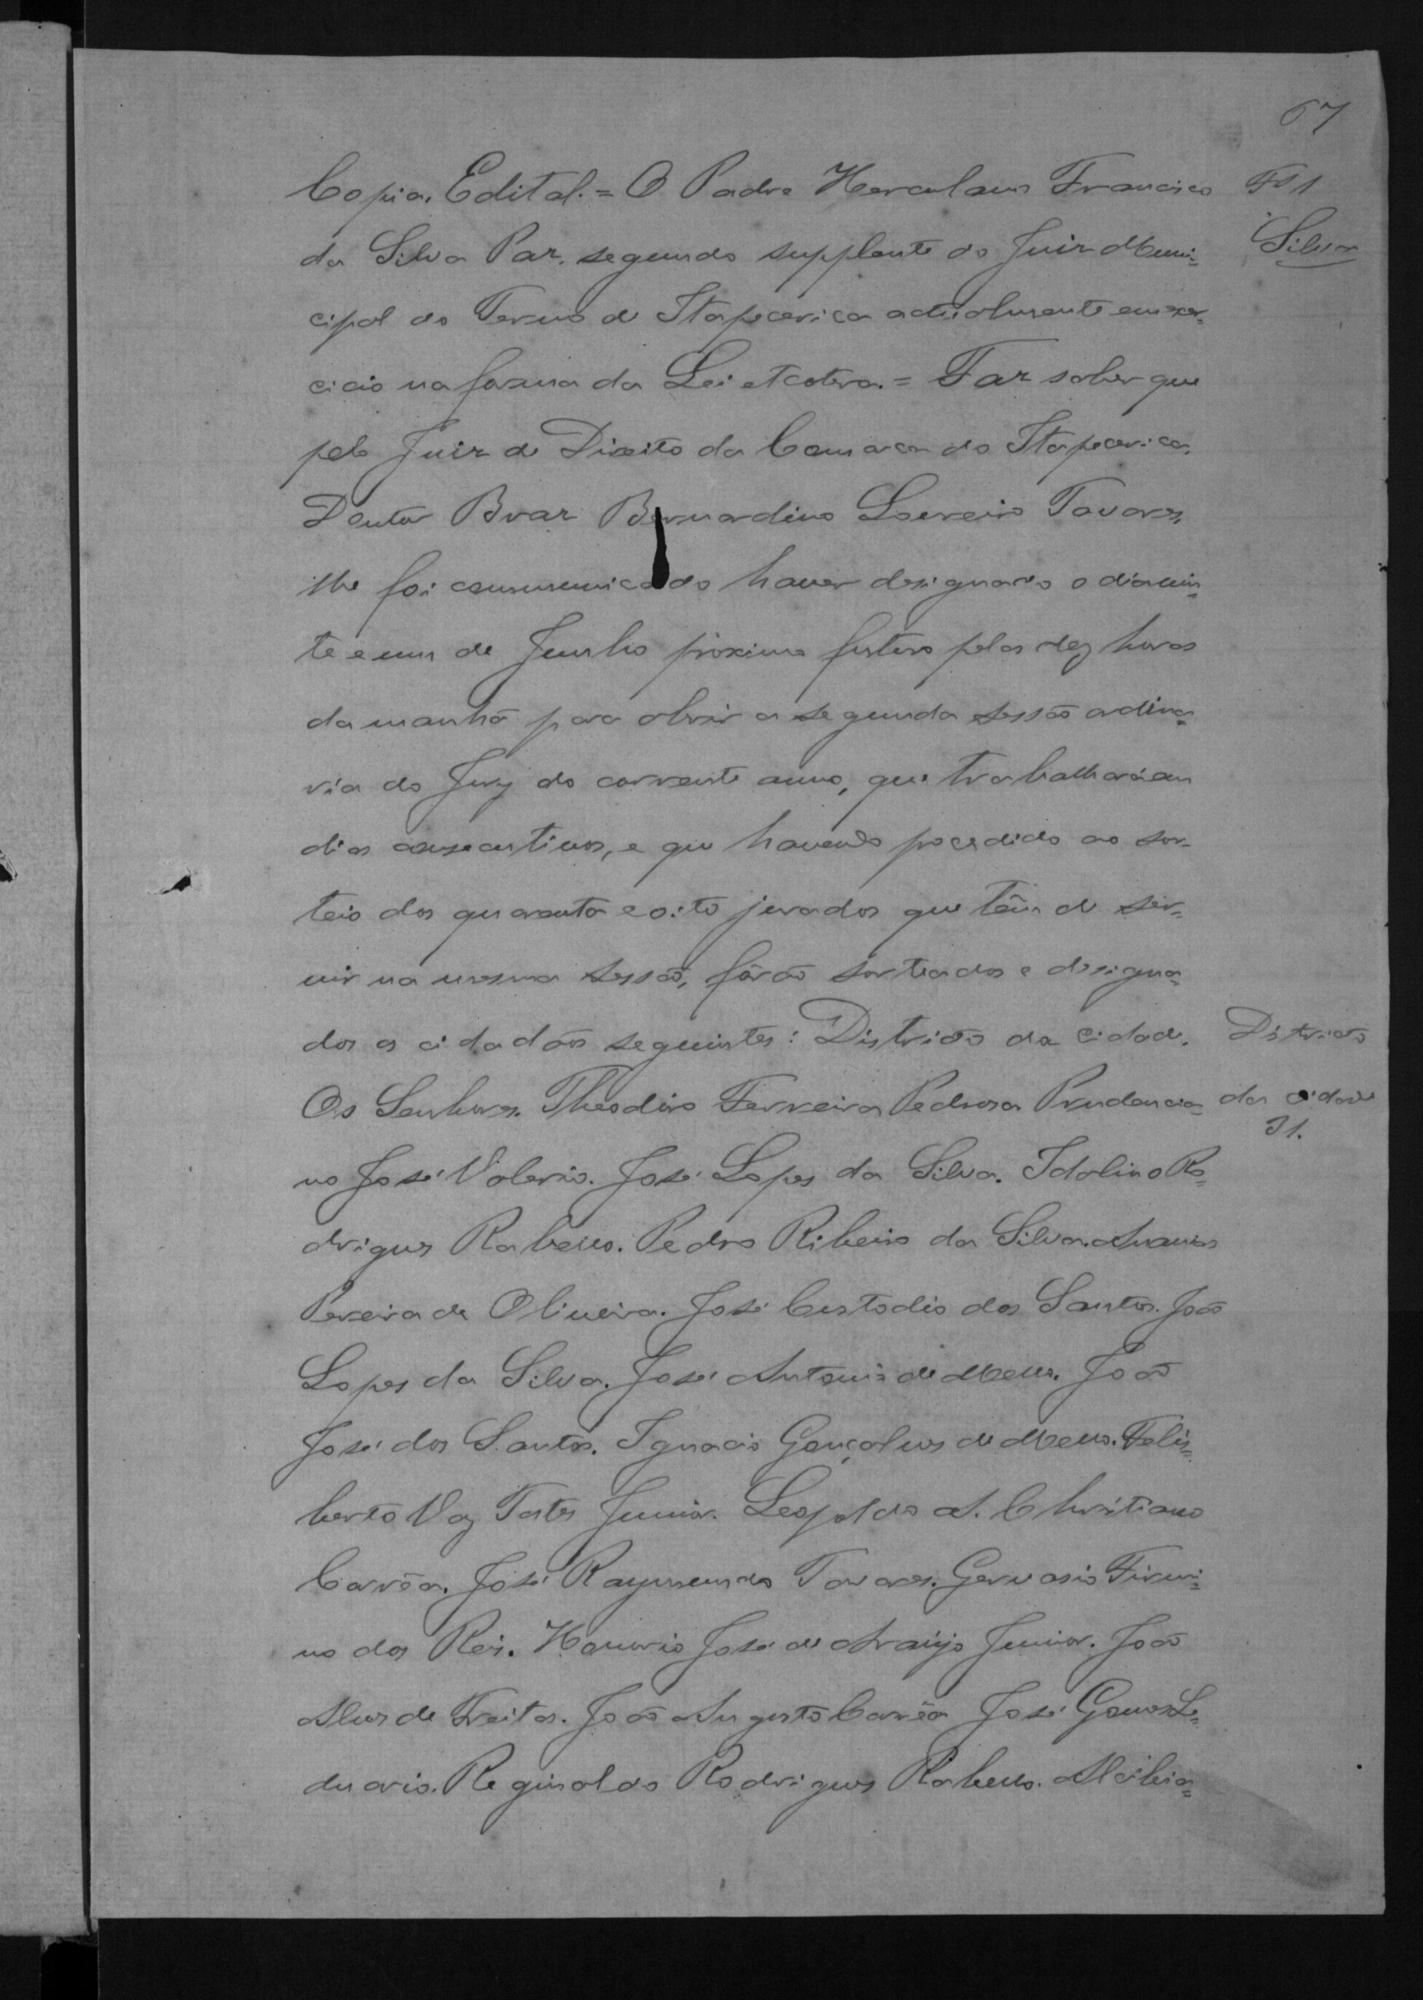 67
Copia. Edital. = O Padre Herculano Francisco
Fs 1
da Silva Paz, segundo supplente do Juiz Muni-
Silva
cipal do Termo de Itapecerica actualmente em exer-
cicio na forma da Lei etcetera. = Faz saber que
pelo Juiz de Direito da Comarca do Itapecerica,
Doutor Braz Bernardino Loureiro Tavares,
lhe foi communicado haver designado o dia vin-
te e um de Junho proximo futuro pelas dez horas
da manhã para abrir a segunda sessão ordina-
ria do Jury do corrente anno, que trabalhará em
dias consecutivos, e que havendo procedido ao sor-
teio dos quarenta e oito jurados que têm de ser-
vir na mesma sessão, fôrão sorteados e designa-
dos os cidadãos seguintes: Districto da cidade.
Districto
Os Senhores. Theodoro Ferreira Pedrosa Prudencia-
da cidade
31.
no José Valerio. José Lopes da Silva. Idalino Ro-
drigues Rabello. Pedro Ribeiro da Silva. Ananias
Pereira de Oliveira. José Custodio dos Santos. João
Lopes da Silva. José Antonio de Mello. João
José dos Santos. Ignacio Gonçalves de Mello. Felis-
berto Vaz Tostes Junior. Leopoldo A. Christiano
Corrêa. José Raymundo Tavares. Gervasio Firmi-
no dos Reis. Honorio José de Araújo Junior. João
Alves de Freitas. João Augusto Corrêa José Gomes Le-
duario. Reginaldo Rodrigues Rabello. Alcibia-